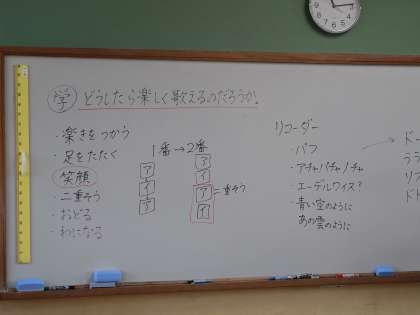 学 どうしたら楽しく歌えるのだろうか。
・楽きをつかう
・足をたたく
笑顔
・二重そう
・おどる
・わになる
1番→2番
ア
イ
ウ
ア
イ
ア =二重そう
イ
リコーダー
・パフ
・アチャパチャノチャ
・エーデルワイス?
・青い空のように
あの雲のように